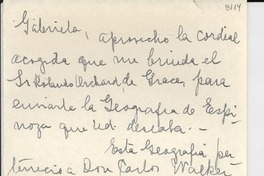 3114
Gabriela, aprovecho la cordial
acogida que me brinda el
Sr. Rolando Orchard, de Grace, para
enviarle la Geografía de Espi-
noza que Ud. deseaba. -
Esta Geografía per-
teneció a Don Carlos Walker